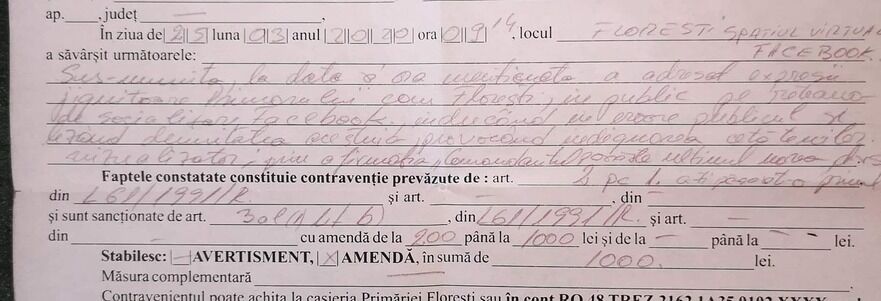 ap. — , județ — ,
În ziua de |2|5| luna |0|3| anul |2|0|2|0| ora |0|9| 14, locul FLOREȘTI SPAȚIUL VIRTUAL
FACEBOOK.
a săvârșit următoarele:
Sus-numita, la data și ora menționată a adresat expresii
jignitoare Primarului com Florești, în public pe rețeaua
de socializare Facebook, inducând în eroare publicul și
lezând demnitatea acestuia provocând indignarea cetățenilor
prin afirmația, comandantul ultimul
Faptele constatate constituie contravenție prevăzute de : art. 2 pc 1
din L61/1991/R. și art. — , din
și sunt sancționate de art. 3 al (1) L b) , din L61/1991/R. și art. —
din — cu amendă de la 200 până la 1000 lei și de la — până la — lei.
Stabilesc: |—| AVERTISMENT, |X| AMENDĂ, în sumă de 1000. lei.
Măsura complementară —
Contravenientul poate achita la casieria Primăriei Florești sau în cont RO 48 TREZ 2162